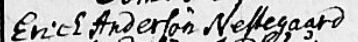 Erick Anderſon Nestegaard